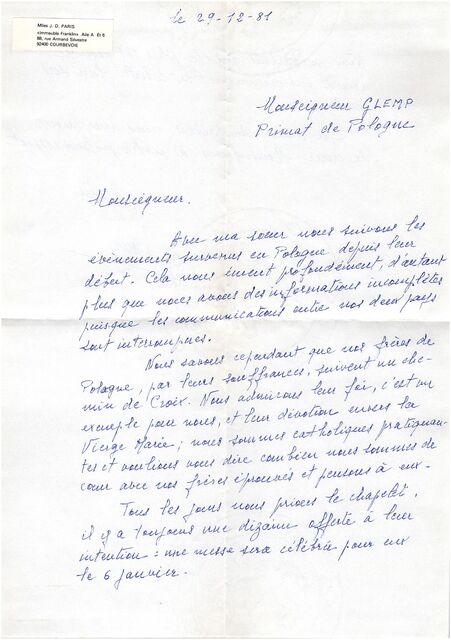 Mlles J. D. PARIS
«Immeuble Franklin» Aile A Et 6
88, rue Armand Silvestre
92400 COURBEVOIE
le 29-12-81
Monseigneur GLEMP
Primat de Pologne
Monseigneur.
Avec ma soeur nous suivons les
évènements survenus en Pologne depuis leur
début. Cela nous émeut profondément, d'autant
plus que nous avons des informations incomplètes
puisque les communications entre nos deux pays
sont interrompues.
Nous savons cependant que nos frères de
Pologne, par leurs souffrances, suivent un che-
min de Croix. Nous admirons leur foi, c'est un
exemple pour nous, et leur dévotion envers la
Vierge Marie; nous sommes catholiques pratiquan-
tes et voulions vous dire combien nous sommes de
coeur avec nos frères éprouvés et pensons à eux.
Tous les jours nous prions le chapelet,
il y a toujours une dizaine offerte à leur
intention : une messe sera célébrée pour eux
le 6 janvier.